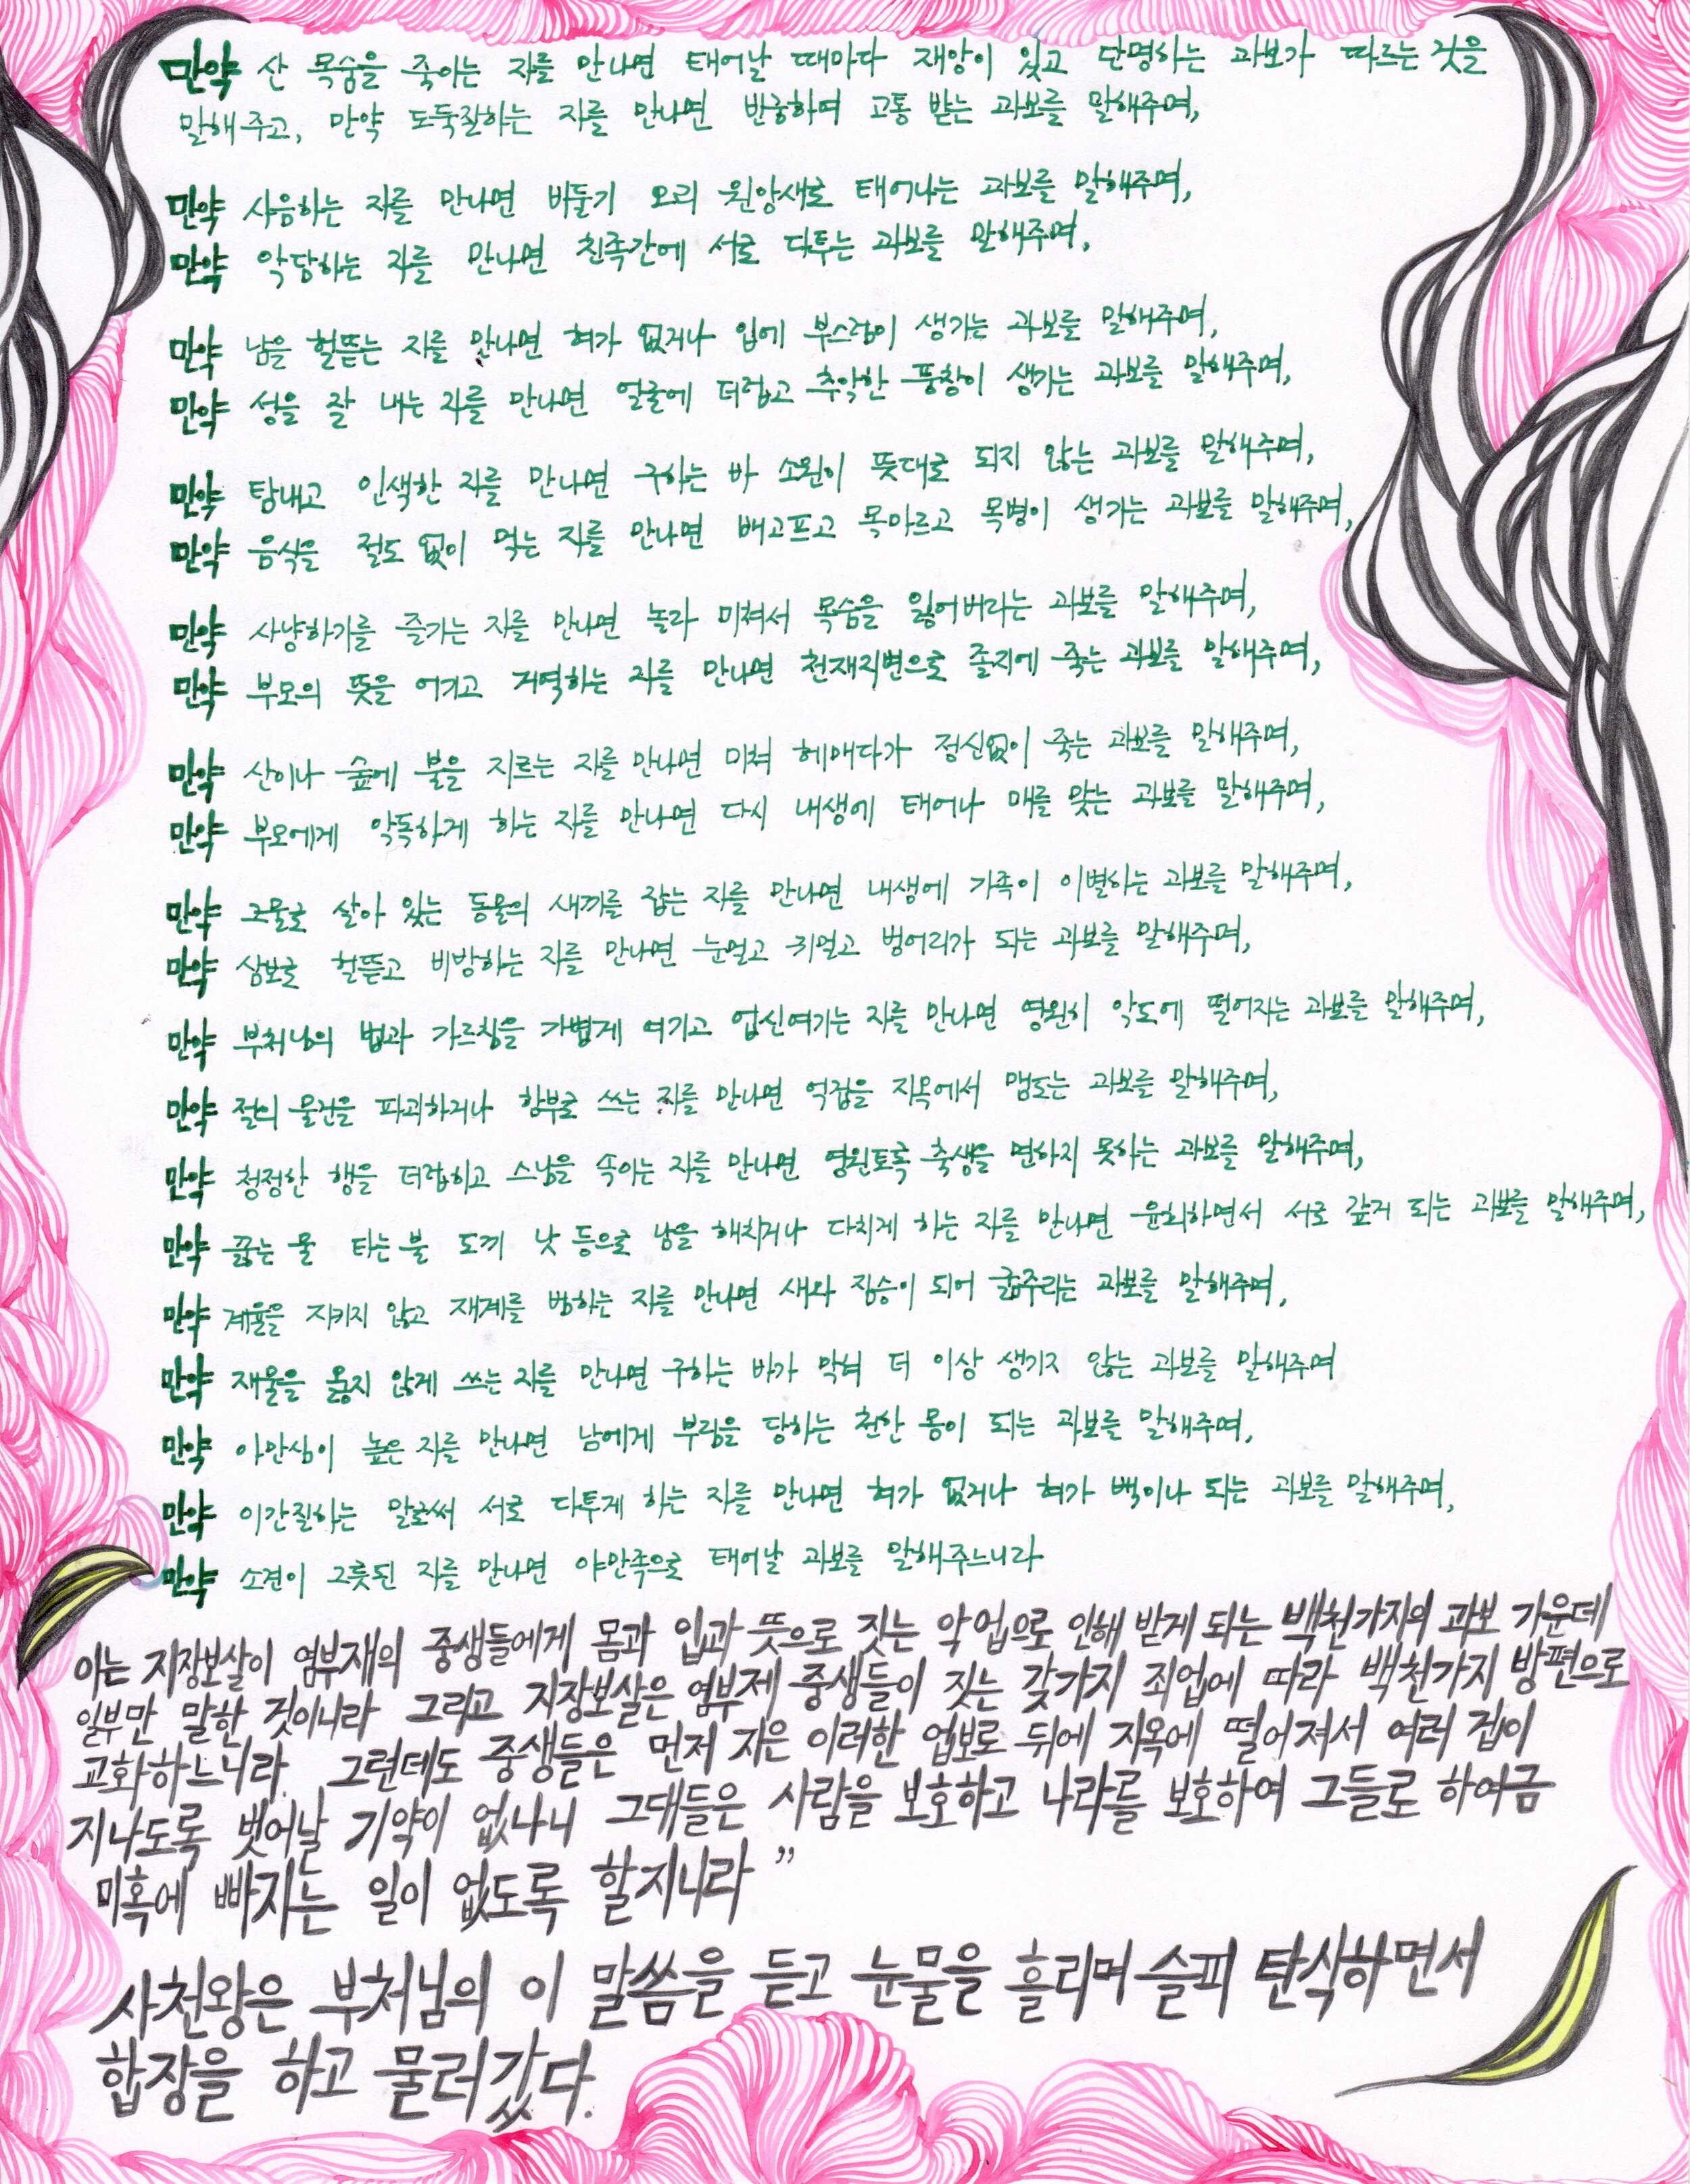 만약 산 목숨을 죽이는 자를 만나면 태어날 때마다 재앙이 있고 단명하는 과보가 따르는 것을
말해주고, 만약 도둑질하는 자를 만나면 빈궁하여 고통 받는 과보를 말해주며,
만약 사음하는 자를 만나면 비둘기 오리 원앙새로 태어나는 과보를 말해주며,
만약 악담하는 자를 만나면 친족간에 서로 다투는 과보를 말해주며,
만약 남을 헐뜯는 자를 만나면 혀가 없거나 입에 부스럼이 생기는 과보를 말해주며,
만약 성을 잘 내는 자를 만나면 얼굴에 더럽고 추악한 풍창이 생기는 과보를 말해주며,
만약 탐내고 인색한 자를 만나면 구하는 바 소원이 뜻대로 되지 않는 과보를 말해주며,
만약 음식을 절도 없이 먹는 자를 만나면 배고프고 목마르고 목병이 생기는 과보를 말해주며,
만약 사냥하기를 즐기는 자를 만나면 놀라 미쳐서 목숨을 잃어버리는 과보를 말해주며,
만약 부모의 뜻을 어기고 거역하는 자를 만나면 천재지변으로 졸지에 죽는 과보를 말해주며,
만약 산이나 숲에 불을 지르는 자를 만나면 미쳐 헤매다가 정신없이 죽는 과보를 말해주며,
만약 부모에게 악독하게 하는 자를 만나면 다시 내생에 태어나 매를 맞는 과보를 말해주며,
만약 그물로 살아 있는 동물의 새끼를 잡는 자를 만나면 내생에 가족이 이별하는 과보를 말해주며,
만약 삼보를 헐뜯고 비방하는 자를 만나면 눈멀고 귀멀고 벙어리가 되는 과보를 말해주며,
만약 부처님의 법과 가르침을 가볍게 여기고 업신여기는 자를 만나면 영원히 악도에 떨어지는 과보를 말해주며,
만약 절의 물건을 파괴하거나 함부로 쓰는 자를 만나면 억겁을 지옥에서 맴도는 과보를 말해주며,
만약 청정한 행을 더럽히고 스님을 속이는 자를 만나면 영원토록 축생을 면하지 못하는 과보를 말해주며,
만약 끓는 물 타는 불 도끼 낫 등으로 남을 해치거나 다치게 하는 자를 만나면 윤회하면서 서로 갚게 되는 과보를 말해주며,
만약 계율을 지키지 않고 재계를 범하는 자를 만나면 새와 짐승이 되어 굶주리는 과보를 말해주며,
만약 재물을 옳지 않게 쓰는 자를 만나면 구하는 바가 막혀 더 이상 생기지 않는 과보를 말해주며
만약 아만심이 높은 자를 만나면 남에게 부림을 당하는 천한 몸이 되는 과보를 말해주며,
만약 이간질하는 말로써 서로 다투게 하는 자를 만나면 혀가 없거나 혀가 백이나 되는 과보를 말해주며,
만약 소견이 그릇된 자를 만나면 야만족으로 태어날 과보를 말해주느니라
이는 지장보살이 염부재의 중생들에게 몸과 입과 뜻으로 짓는 악업으로 인해 받게 되는 백천가지의 과보 가운데
일부만 말한 것이니라 그리고 지장보살은 염부제 중생들이 짓는 갖가지 죄업에 따라 백천가지 방편으로
교화하느니라. 그런데도 중생들은 먼저 지은 이러한 업보로 뒤에 지옥에 떨어져서 여러 겁이
지나도록 벗어날 기약이 없나니 그대들은 사람을 보호하고 나라를 보호하여 그들로 하여금
미혹에 빠지는 일이 없도록 할지니라"
사천왕은 부처님의 이 말씀을 듣고 눈물을 흘리며 슬피 탄식하면서
합장을 하고 물러갔다.